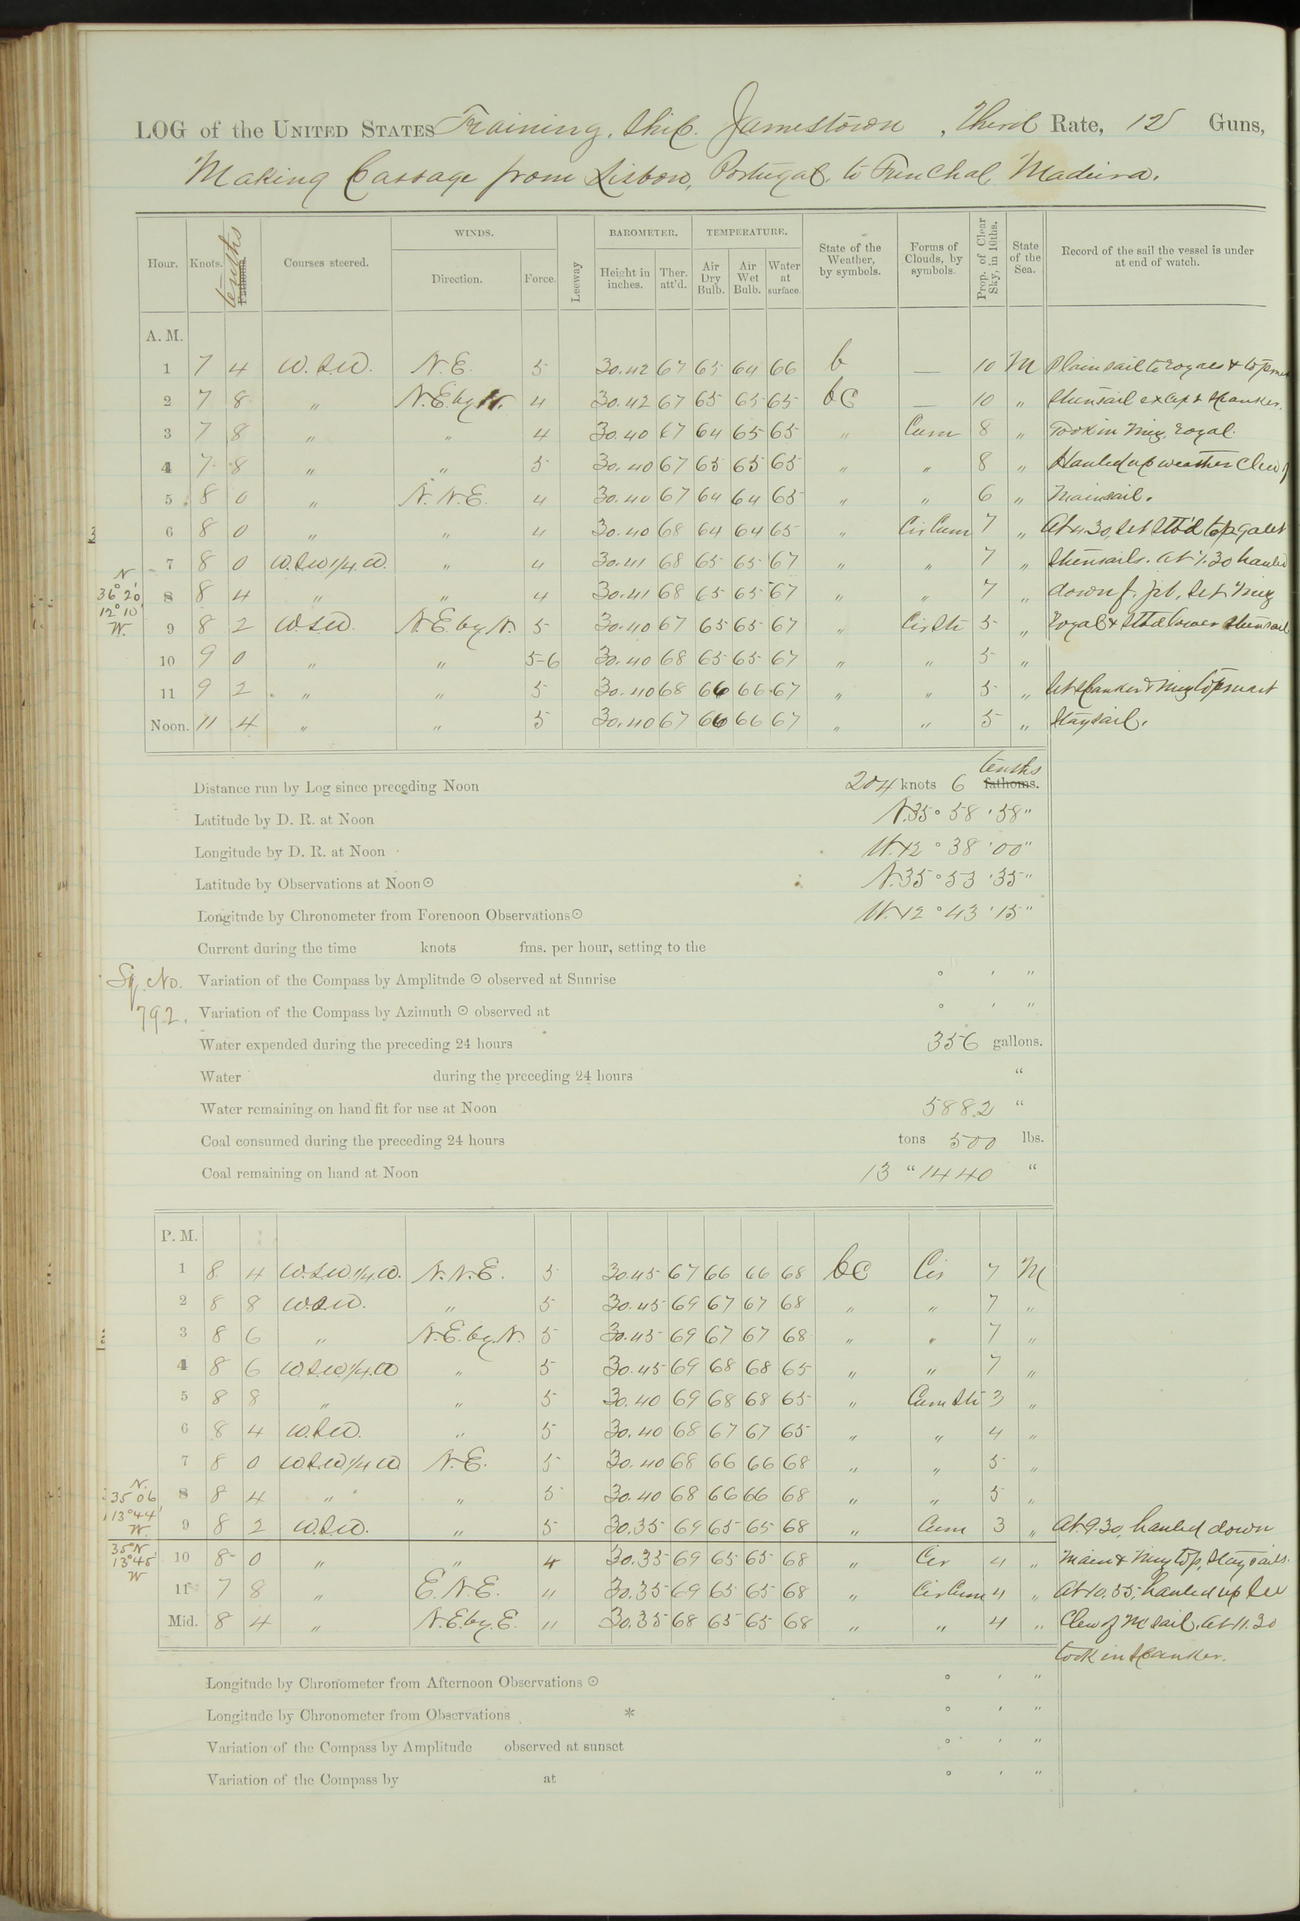 LOG of the UNITED STATES Training Ship Jamestown, Third Rate, 12 Guns,
Making Passage from Lisbon, Portugal, to Funchal Madeira.
Hour. Knots. tenths Fathoms. Courses steered. WINDS. Direction. Force. Leeway BAROMETER. Height in inches. Ther. att'd. TEMPERATURE. Air Dry Bulb. Air Wet Bulb. Water at surface. State of the Weather, by symbols. Forms of Clouds, by symbols. Prop. of Clear Sky, in 10ths. State of the Sea. Record of the sail the vessel is under at end of watch.
A. M.
1 7 4 W.S.W. N.E. 5 30.42 67 65 64 66 b — 10 M Plain sail to royals & topmast
2 7 8 " N.E. by N. 4 30.42 67 65 65 65 bc — 10 " stunsail except spanker.
3 7 8 " " 4 30.40 67 64 65 65 " Cum 8 " Took in Miz. royal.
4 7 8 " " 5 30.40 67 65 65 65 " " 8 " Hauled up weather clew of
5 8 0 " N.N.E. 4 30.40 67 64 64 65 " " 6 " Mainsail.
3 6 8 0 " " 4 30.40 68 64 64 65 " Cir Cum 7 " At 4.30, set stb'd top galt
7 8 0 W.S.W 1/4 W. " 4 30.41 68 65 65 67 " " 7 " stunsails. At 7.30 hauled
N 36° 20' 12° 10' W. 8 8 4 " " 4 30.41 68 65 65 67 " " 7 " down f. jib, set Miz
9 8 2 W.S.W. N.E. by N. 5 30.40 67 65 65 67 " Cir Str 5 " Royal & stbd lower stunsail
10 9 0 " " 5-6 30.40 68 65 65 67 " " 5 "
11 9 2 " " 5 30.40 68 66 66 67 " " 5 " Set spanker & Miz topmast
Noon. 11 4 " " 5 30.40 67 66 66 67 " " 5 " Staysail.
Distance run by Log since preceding Noon 204 knots 6 tenths fathoms.
Latitude by D. R. at Noon N. 35° 58' 58"
Longitude by D. R. at Noon W. 12° 38' 00"
Latitude by Observations at Noon ☉ N. 35° 53' 35"
Longitude by Chronometer from Forenoon Observations ☉ W. 12° 43' 15"
Current during the time knots fms. per hour, setting to the
Sq. No. 792.
Variation of the Compass by Amplitude ☉ observed at Sunrise ° ' "
Variation of the Compass by Azimuth ☉ observed at ° ' "
Water expended during the preceding 24 hours 356 gallons.
Water during the preceding 24 hours "
Water remaining on hand fit for use at Noon 5882 "
Coal consumed during the preceding 24 hours tons 500 lbs.
Coal remaining on hand at Noon 13 " 1440 "
P. M.
1 8 4 W.S.W 1/4 W. N.N.E. 5 30.45 67 66 66 68 bc Cir 7 M
2 8 8 W.S.W. " 5 30.45 69 67 67 68 " " 7 "
3 8 6 " N.E. by N. 5 30.45 69 67 67 68 " " 7 "
4 8 6 W.S.W 1/4 W " 5 30.45 69 68 68 65 " " 7 "
5 8 8 " " 5 30.40 69 68 68 65 " Cum Str 3 "
6 8 4 W.S.W. " 5 30.40 68 67 67 65 " " 4 "
7 8 0 W.S.W 1/4 W N.E. 5 30.40 68 66 66 68 " " 5 "
N. 35° 06' 13° 44' W. 8 8 4 " " 5 30.40 68 66 66 68 " " 5 "
9 8 2 W.S.W. " 5 30.35 69 65 65 68 " Cum 3 " At 9.30, hauled down
35° N 13° 45' W 10 8 0 " " 4 30.35 69 65 65 68 " Cir 4 " Main & Miz top, staysails.
11 7 8 " E.N.E. 4 30.35 69 65 65 68 " Cir Cum 4 " At 10.55, hauled up lee
Mid. 8 4 " N.E. by E. 4 30.35 68 65 65 68 " " 4 " Clew of M sail. At 11.30
took in Spanker.
Longitude by Chronometer from Afternoon Observations ☉ ° ' "
Longitude by Chronometer from Observations * ° ' "
Variation of the Compass by Amplitude observed at sunset ° ' "
Variation of the Compass by at ° ' "